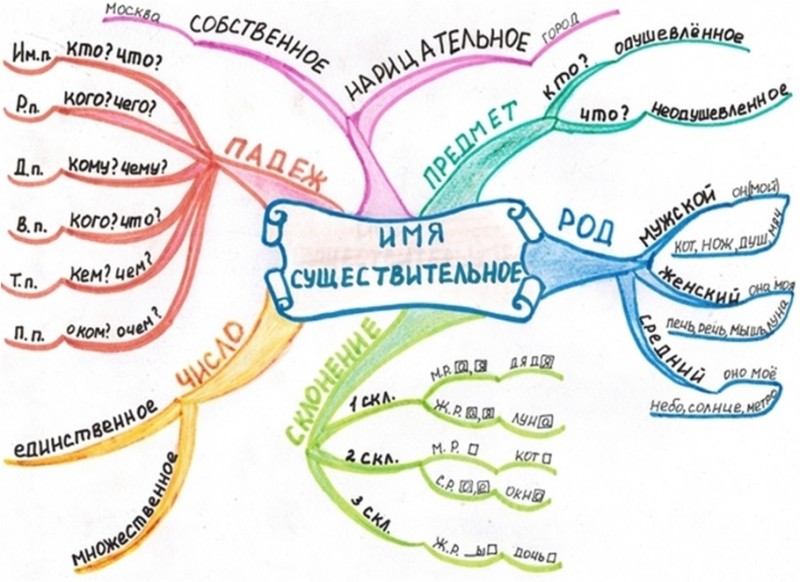 ИМЯ
СУЩЕСТВИТЕЛЬНОЕ
СОБСТВЕННОЕ
МОСКВА
НАРИЦАТЕЛЬНОЕ
ГОРОД
ПРЕДМЕТ
КТО?
ОДУШЕВЛЁННОЕ
ЧТО?
НЕОДУШЕВЛЕННОЕ
РОД
МУЖСКОЙ
ОН(МОЙ)
КОТ, НОЖ, ДУШ, МЯЧ
ЖЕНСКИЙ
ОНА МОЯ
ПЕЧЬ, РЕЧЬ, МЫШЬ, ЛУНА
СРЕДНИЙ
ОНО МОЁ
НЕБО, СОЛНЦЕ, МЕТРО
СКЛОНЕНИЕ
1 СКЛ.
М.Р. а, я
ДЯДЯ
Ж.Р. а, я
ЛУНА
2 СКЛ.
М.Р.
КОТ
С.Р. о, е
ОКНО
3 СКЛ.
Ж.Р. _Ь
ДОЧЬ
ЧИСЛО
ЕДИНСТВЕННОЕ
МНОЖЕСТВЕННОЕ
ПАДЕЖ
Им.п. КТО? ЧТО?
Р.п. КОГО? ЧЕГО?
Д.п. КОМУ? ЧЕМУ?
В.п. КОГО? ЧТО?
Т.п. КЕМ? ЧЕМ?
П.п. О КОМ? О ЧЕМ?